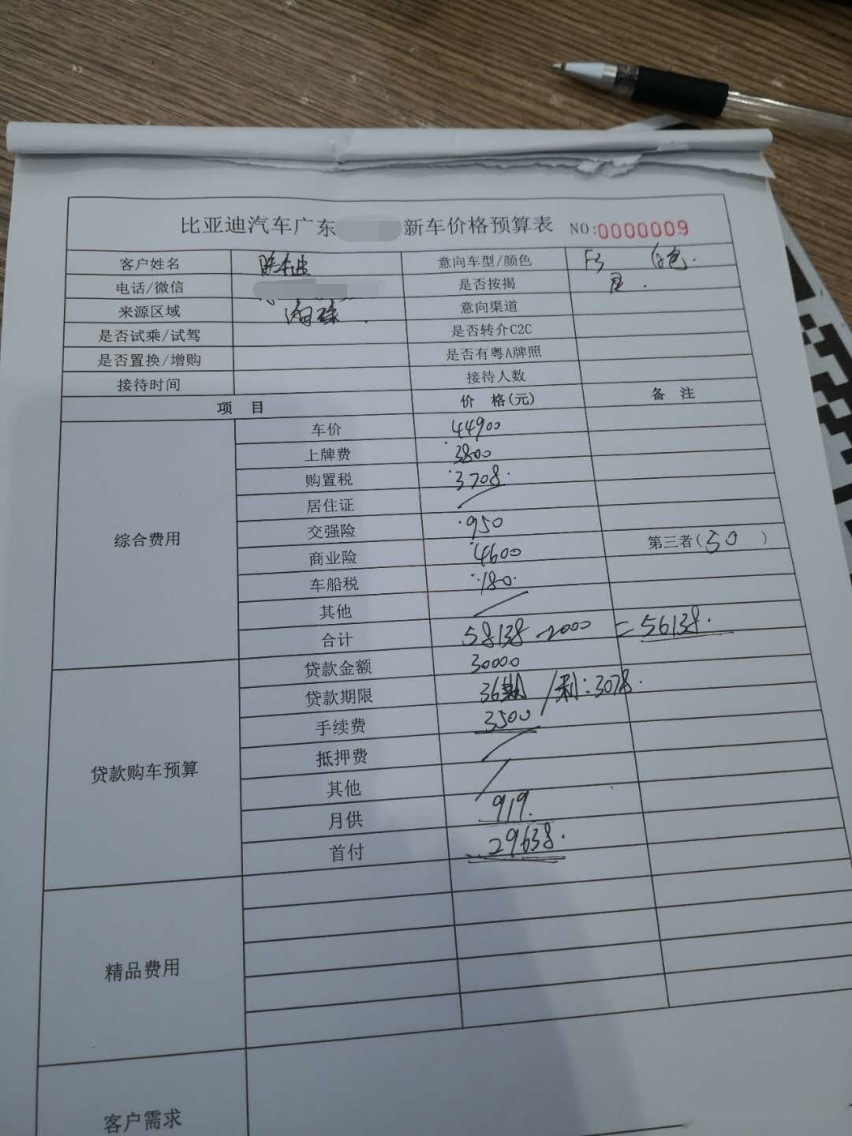 比亚迪汽车广东 新车价格预算表 NO:0000009
客户姓名 意向车型/颜色 F3 白色.
电话/微信 是否按揭 是.
来源区域 海珠. 意向渠道
是否试乘/试驾 是否转介C2C
是否置换/增购 是否有粤A牌照
接待时间 接待人数
项 目 价 格(元) 备 注
综合费用
车价 44900
上牌费 3800
购置税 3708.
居住证 /
交强险 950
商业险 4600 第三者(50 )
车船税 180.
其他 /
合计 58138 -2000 = 56138.
贷款购车预算
贷款金额 30000
贷款期限 36期 / 利:3078.
手续费 3500
抵押费 /
其他 /
月供 919.
首付 29638.
精品费用
客户需求